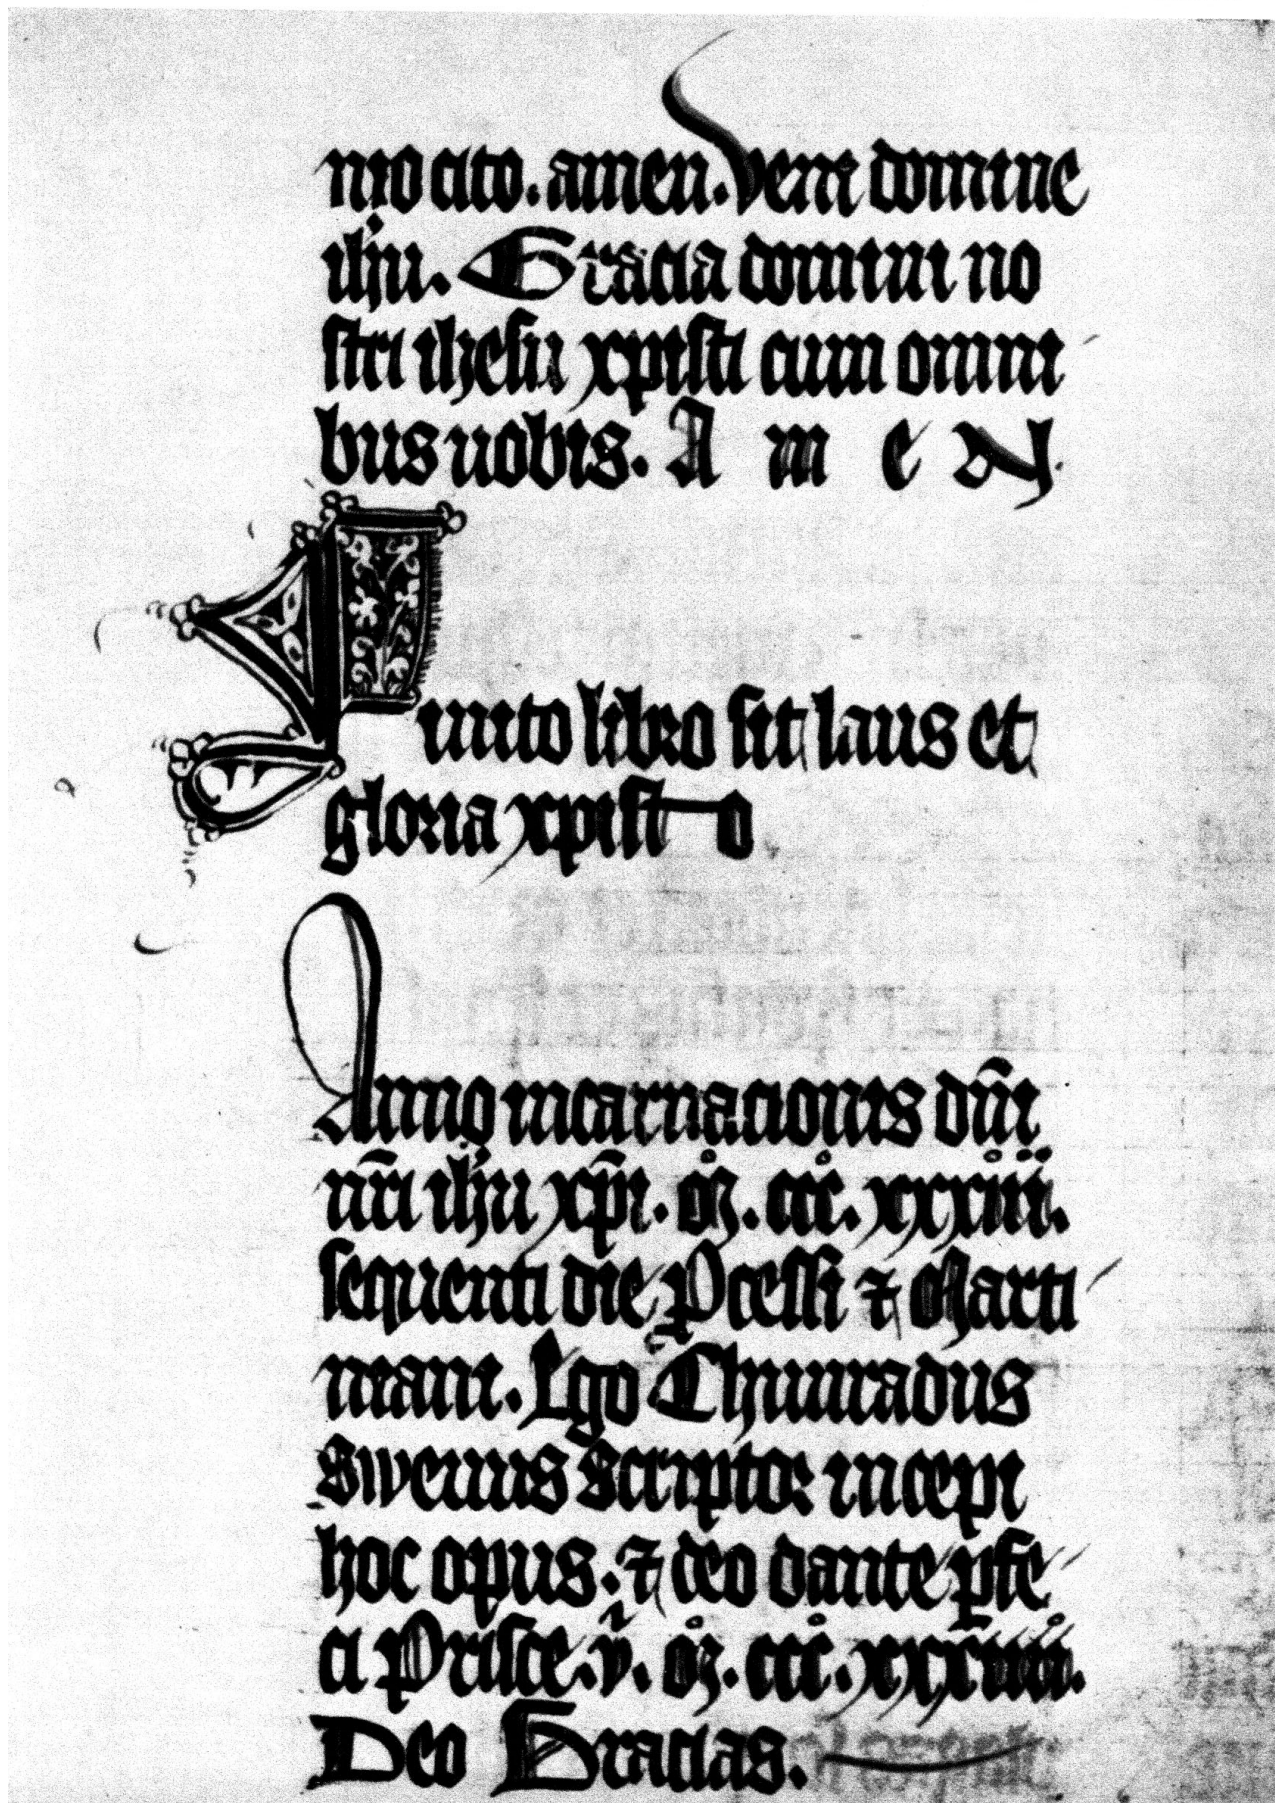 nio cito. amen. Veni domine
ih̄u. Gracia domini no
stri ihesu xpisti cum omni
bus uobis. A m e N.
Finito libro sit laus et
gloria xpisto
Anno incarnacionis dn̄i
nr̄i ih̄u xp̄i. M̊. ccc̊. xxxiii̊.
sequenti die Pcessi ⁊ Marti
niani. Ego Chunradus
Sweuus Scriptor incepi
hoc opus. ⁊ deo dante pfe
ci Prisce. v̊. M̊. ccc̊. xxxiiii̊.
Deo Gracias.